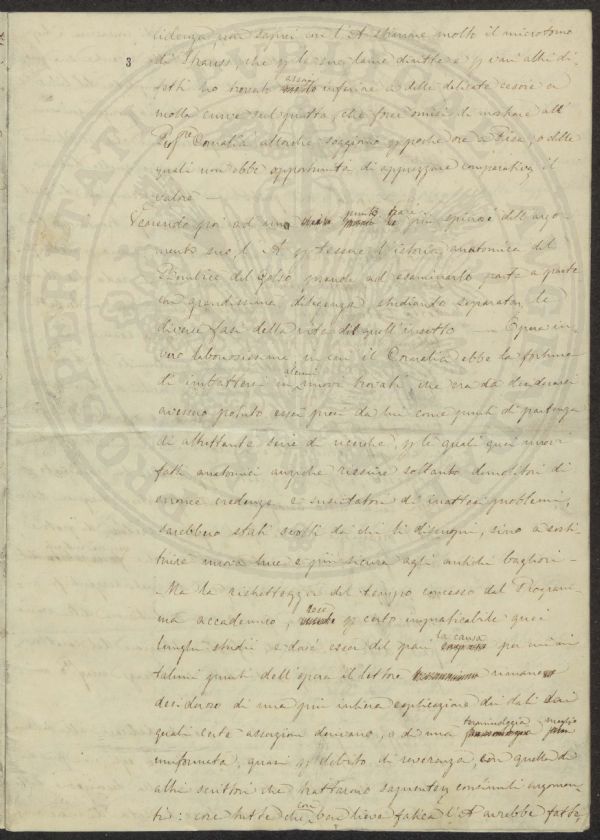 3
di Strauss, che per le sue lame diritte e per vari altri di-
fetti ho trovato assai inferiore a delle delicate cesoie a
molla curve sul piatto, che forse omisi di mostrare al
Profre Cornalia allorchè soggiornò per poche ore a Pisa, o delle
quali non ebbe opportunità di apprezzare comparativamente il
valore —
Venendo poi ad uno punto più spinoso dell'argo-
mento suo, l'A per tessere l'istoria anatomica del
Bombice del Gelso prende ad esaminarlo parte a parte
con grandissima diligenza studiando separatamente le
diverse fasi della vita di quell'insetto — Opera in-
vero laboriosissima, in cui il Cornalia ebbe la fortuna
di imbattersi in alcuni nuovi trovati, che era da desiderarsi
avessero potuto esser presi da lui come punti di partenza
di altrettante serie di ricerche, per le quali quei nuovi
fatti anatomici anzichè riescire soltanto demolitori di
erronee credenze e suscitatori di inattesi problemi,
sarebbero stati svolti da chi li discoprì, sino a sosti-
tuire nuova luce e più sicura agli antichi bagliori —
Ma la ristrettezza del tempo concesso dal Program-
ma accademico, rese per certo impraticabile quei
lunghi studii e deve esser del pari la causa per cui in
taluni punti dell'opera il lettore rimane
desideroso di una più intiera esplicazione dei dati dai
quali certe asserzioni derivano, o di una terminologia meglio
uniforme, quasi per debito di reverenza, con quella di
altri scrittori che trattarono sapientemente consimili argomen-
ti: cose tutte che con ben lieve fatica l'A avrebbe fatte,